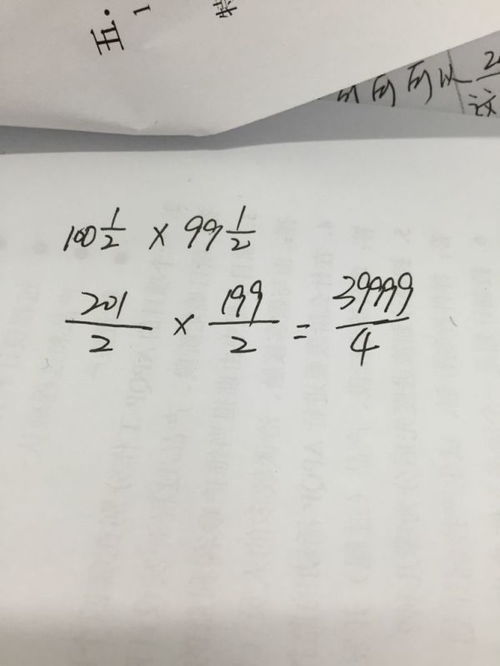 五.
1
可以
这
100 1/2 × 99 1/2
201/2 × 199/2 = 39999/4